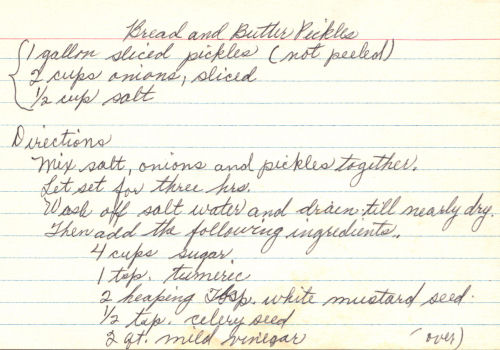 Bread and Butter Pickles
1 gallon sliced pickles (not peeled)
2 cups onions, sliced
1/2 cup salt
Directions
Mix salt, onions and pickles together.
Let set for three hrs.
Wash off salt water and drain till nearly dry.
Then add the following ingredients.
4 cups sugar
1 tsp. tumeric
2 heaping Tbsp. white mustard seed.
1/2 tsp. celery seed
2 qt. mild vinegar (over)